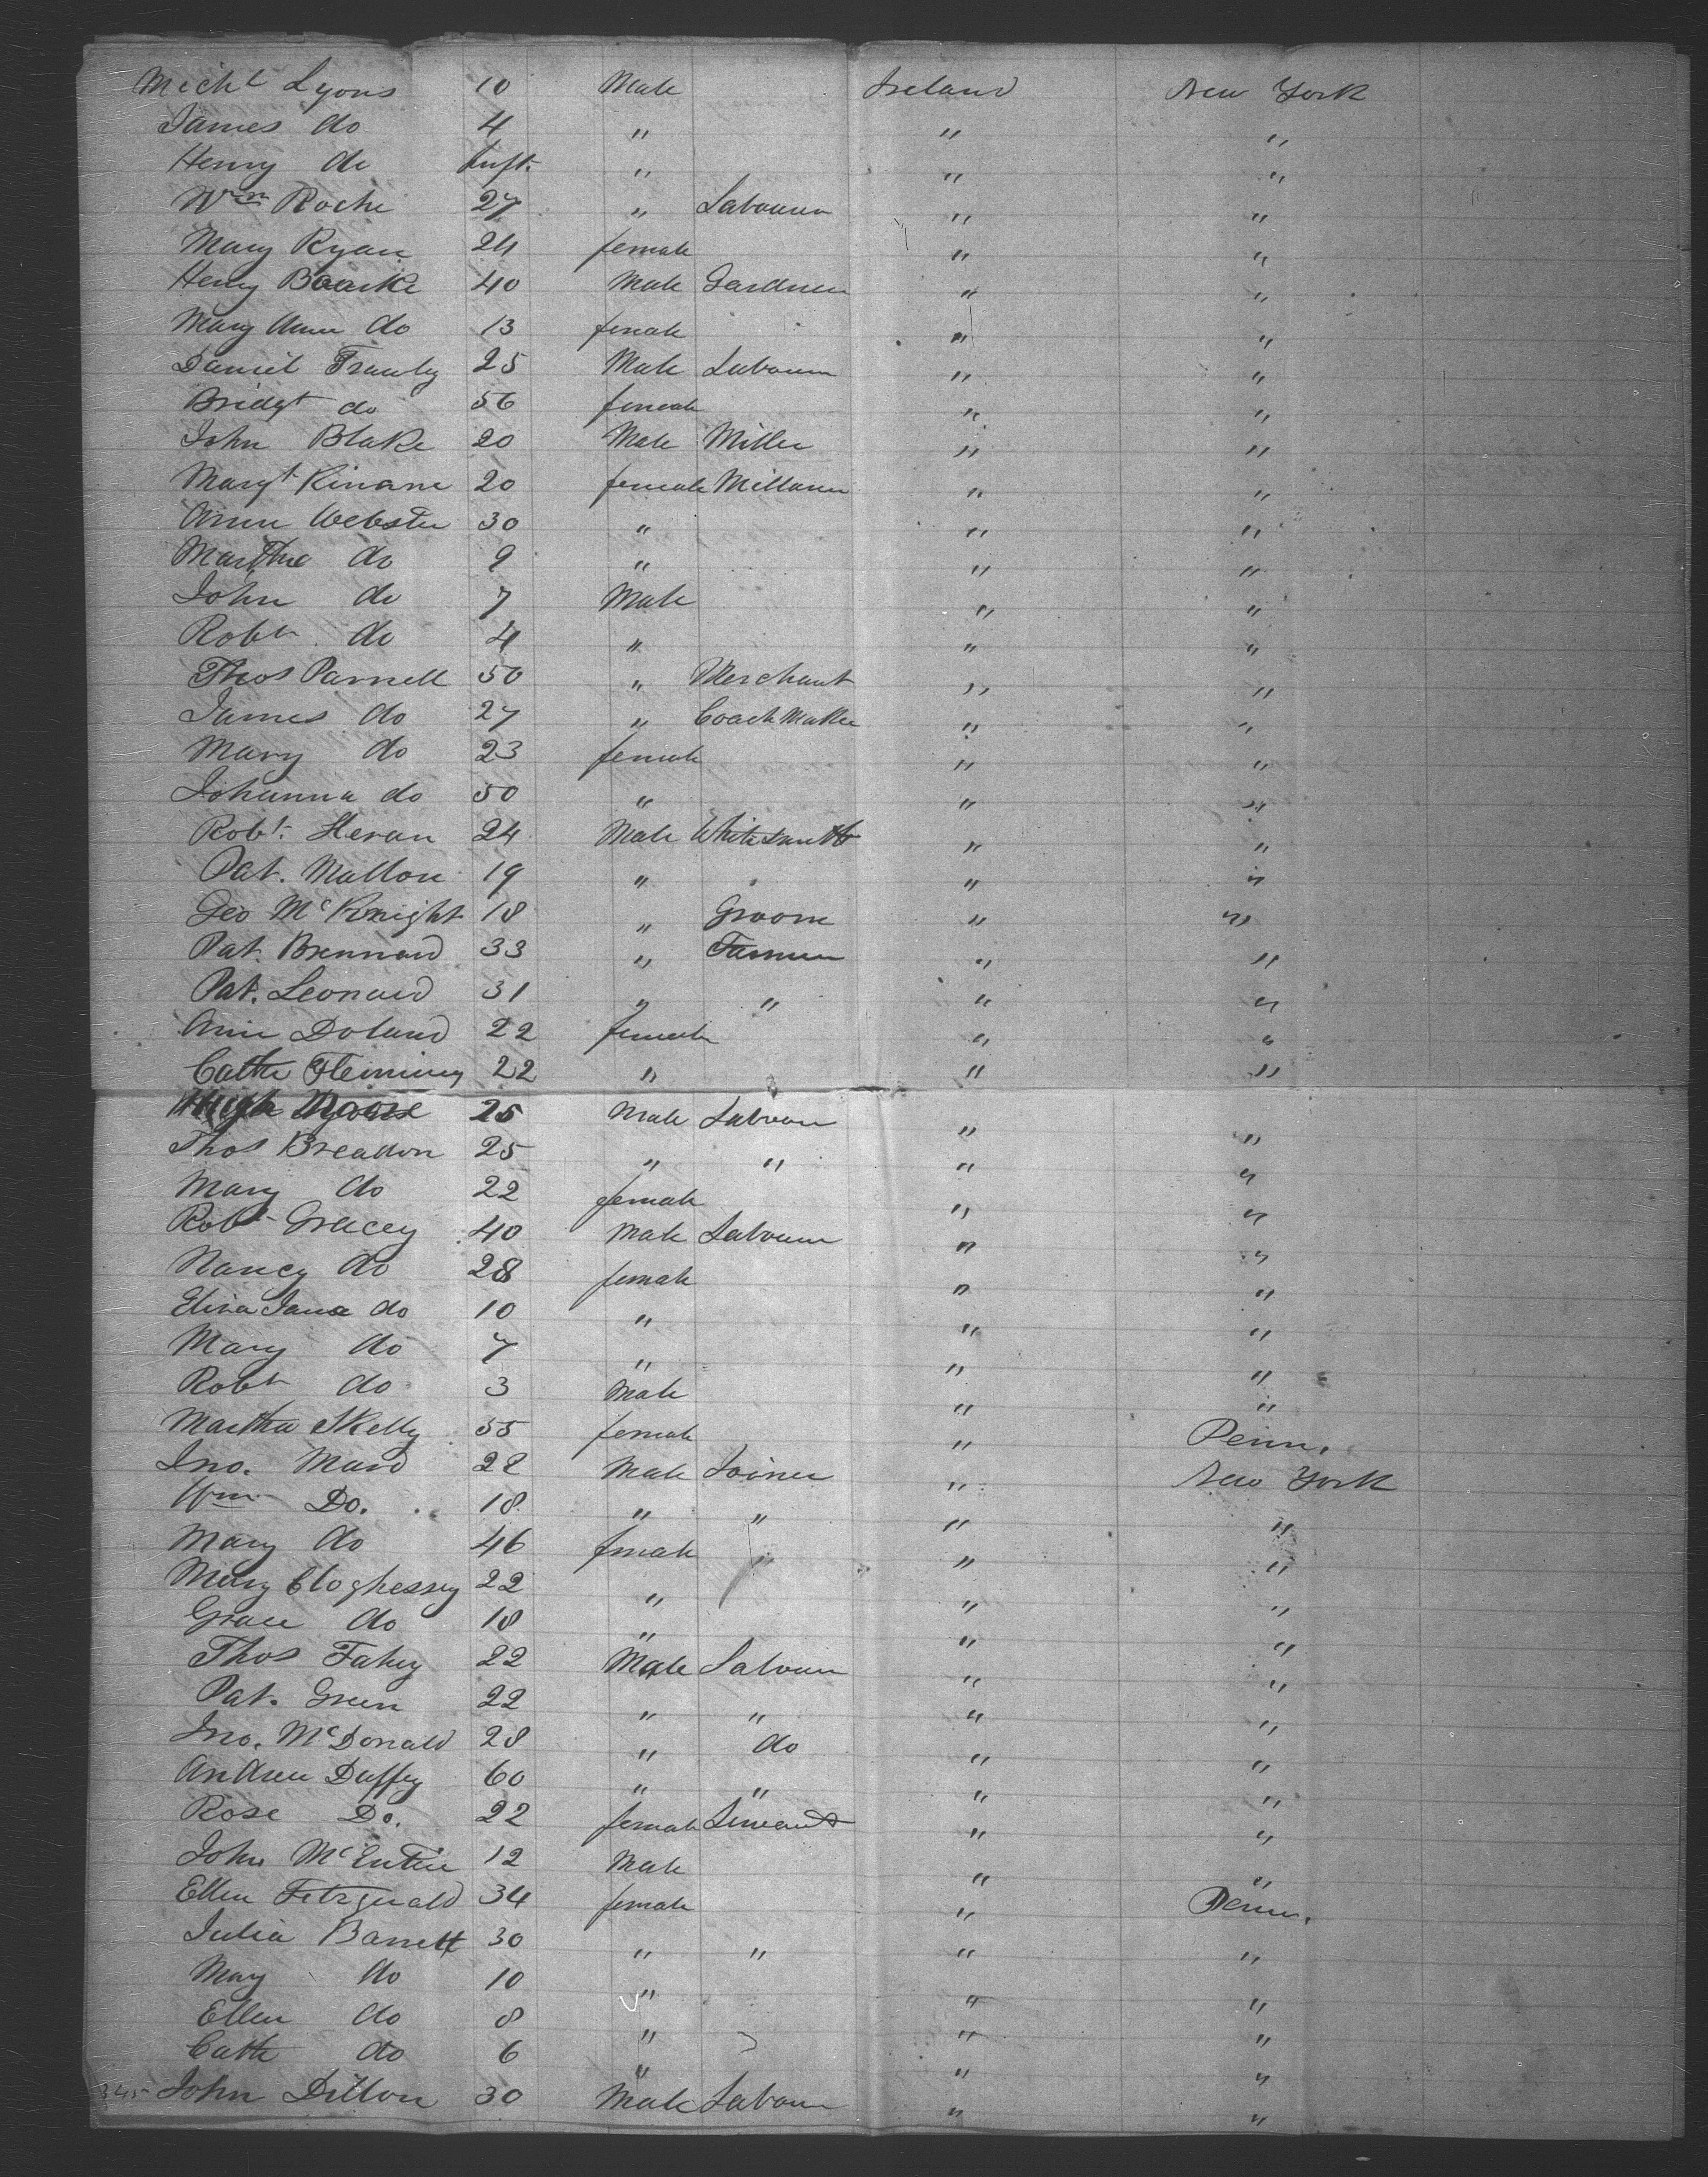 Mich^l Lyons 10 Male Ireland New York
James do 4 " " "
Henry do Inft. " " "
W^m Roche 27 " Labourer " "
Mary Ryan 24 female " "
Henry Bourke 40 Male Gardner " "
Mary Ann do 13 female " "
Daniel Frawly 25 Male Labourer " "
Bridgt do 56 female " "
John Blake 20 Male Miller " "
Margt Kinane 20 female Millaner " "
Ann Webster 30 " " "
Martha do 9 " " "
John do 7 Male " "
Robt. do 4 " " "
Thos Parnell 50 " Merchant " "
James do 27 " Coach Maker " "
Mary do 23 female " "
Johanna do 50 " " "
Robt. Heran 24 Male Whitesmith " "
Pat. Mallon 19 " " "
Geo McKnight 18 " Groom " "
Pat. Brennard 33 " Farmer " "
Pat. Leonard 31 " " " "
Ann Doland 22 female " "
Cathe Fleming 22 " " "
Hugh Moore 25 Male Labour " "
Thos Breadon 25 " " " "
Mary do 22 female " "
Robt Gracey 40 Male Labourer " "
Nancy do 28 female " "
Eliza Jane do 10 " " "
Mary do 7 " " "
Robt do 3 Male " "
Martha Skelly 55 female " Penn.
Jno. Ward 22 Male Joiner " New York
Wm Do. 18 " " " "
Mary do 46 female " " "
Mary Cloghessy 22 " " "
Grace do 18 " " "
Thos Fahey 22 Male Labour " "
Pat. Green 22 " " " "
Jno. McDonald 28 " do " "
Andrew Duffey 60 " " " "
Rose Do. 22 female Servant " "
John McEntire 12 Male " "
Ellen Fitzgerald 34 female " Penn.
Julia Barrett 30 " " " "
May do 10 " " "
Ellen do 8 " " "
Cathe do 6 " " "
345 John Dillon 30 Male Labour " "